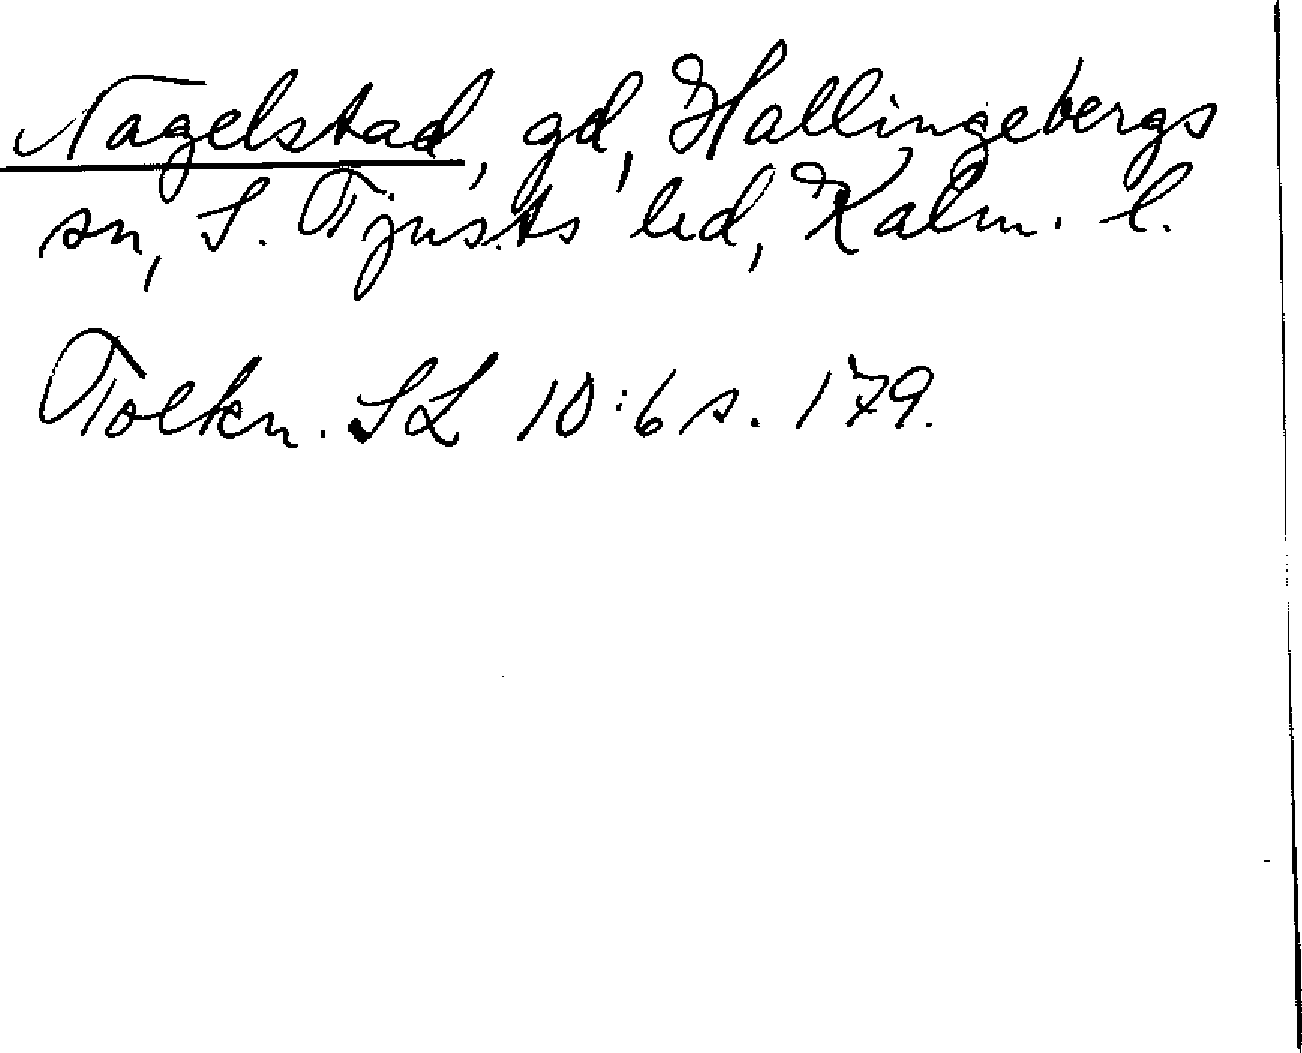 Nagelstad, gd, Hallingebergs
sn, S. Tjusts hd, Kalm. l.
Tolkn. SL 10:6 s. 179.